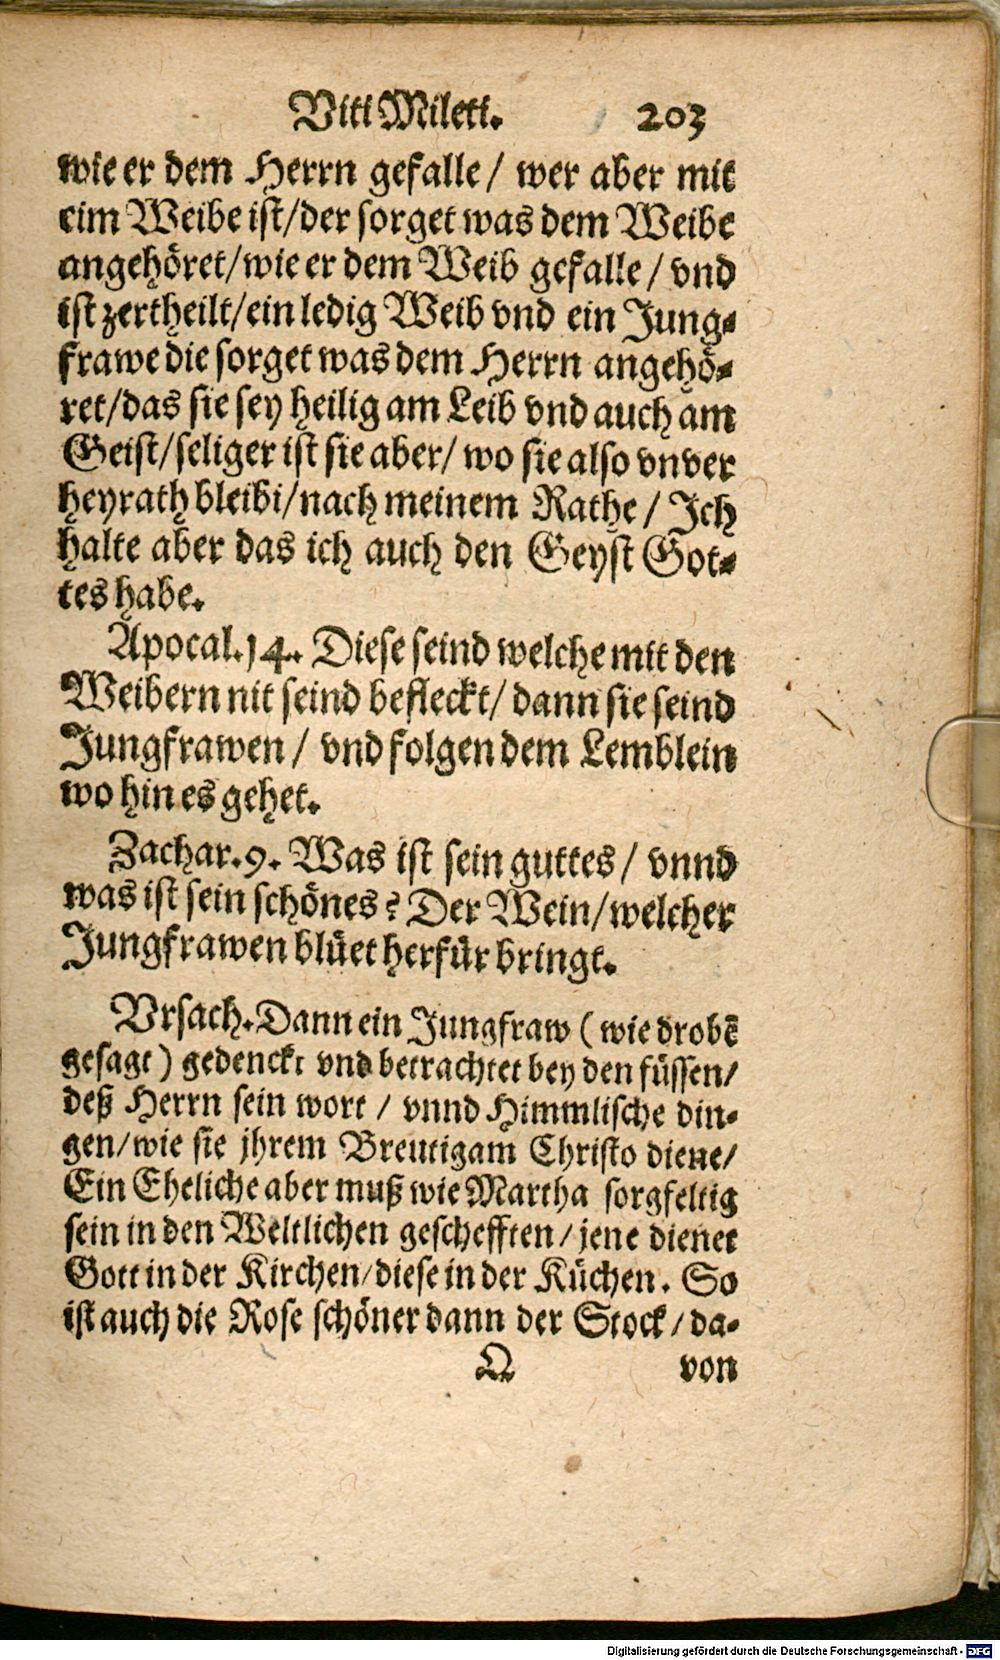 Viti Mileti. 203
wie er dem Herrn gefalle / wer aber mit
eim Weibe ist/der sorget was dem Weibe
angehöret/wie er dem Weib gefalle / vnd
ist zertheilt/ein ledig Weib vnd ein Jung-
frawe die sorget was dem Herrn angehö-
ret/das sie sey heilig am Leib vnd auch am
Geist/seliger ist sie aber/ wo sie also vnver
heyrath bleibi/nach meinem Rathe / Ich
halte aber das ich auch den Geyst Got-
tes habe.
Apocal.14. Diese seind welche mit den
Weibern nit seind befleckt/ dann sie seind
Jungfrawen / vnd folgen dem Lemblein
wo hin es gehet.
Zachar.9. Was ist sein guttes / vnnd
was ist sein schönes? Der Wein/welcher
Jungfrawen blüet herfür bringt.
Vrsach. Dann ein Jungfraw ( wie drobē
gesagt ) gedenckt vnd betrachtet bey den füssen/
deß Herrn sein wort / vnnd Himmlische din-
gen/wie sie jhrem Breutigam Christo diene/
Ein Eheliche aber muß wie Martha sorgfeltig
sein in den Weltlichen geschefften / jene dienet
Gott in der Kirchen/diese in der Küchen. So
ist auch die Rose schöner dann der Stock / da-
Q von
Digitalisierung gefördert durch die Deutsche Forschungsgemeinschaft - DFG